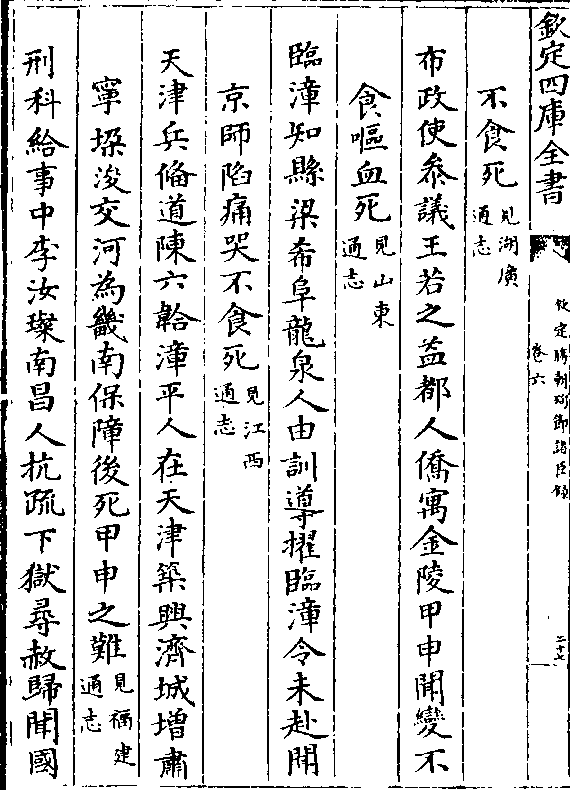 欽定四庫全書
欽定勝朝殉節諸臣錄
卷六
二十七
不食死見湖廣通志
布政使叅議王若之益都人僑寓金陵甲申聞變不
食嘔血死見山東通志
臨漳知縣梁希阜龍泉人由訓導擢臨漳令未赴聞
京師陷痛哭不食死見江西通志
天津兵備道陳六韐漳平人在天津築興濟城增肅
寧堞浚交河為畿南保障後死甲申之難見福建通志
刑科給事中李汝璨南昌人抗疏下獄尋赦歸聞國